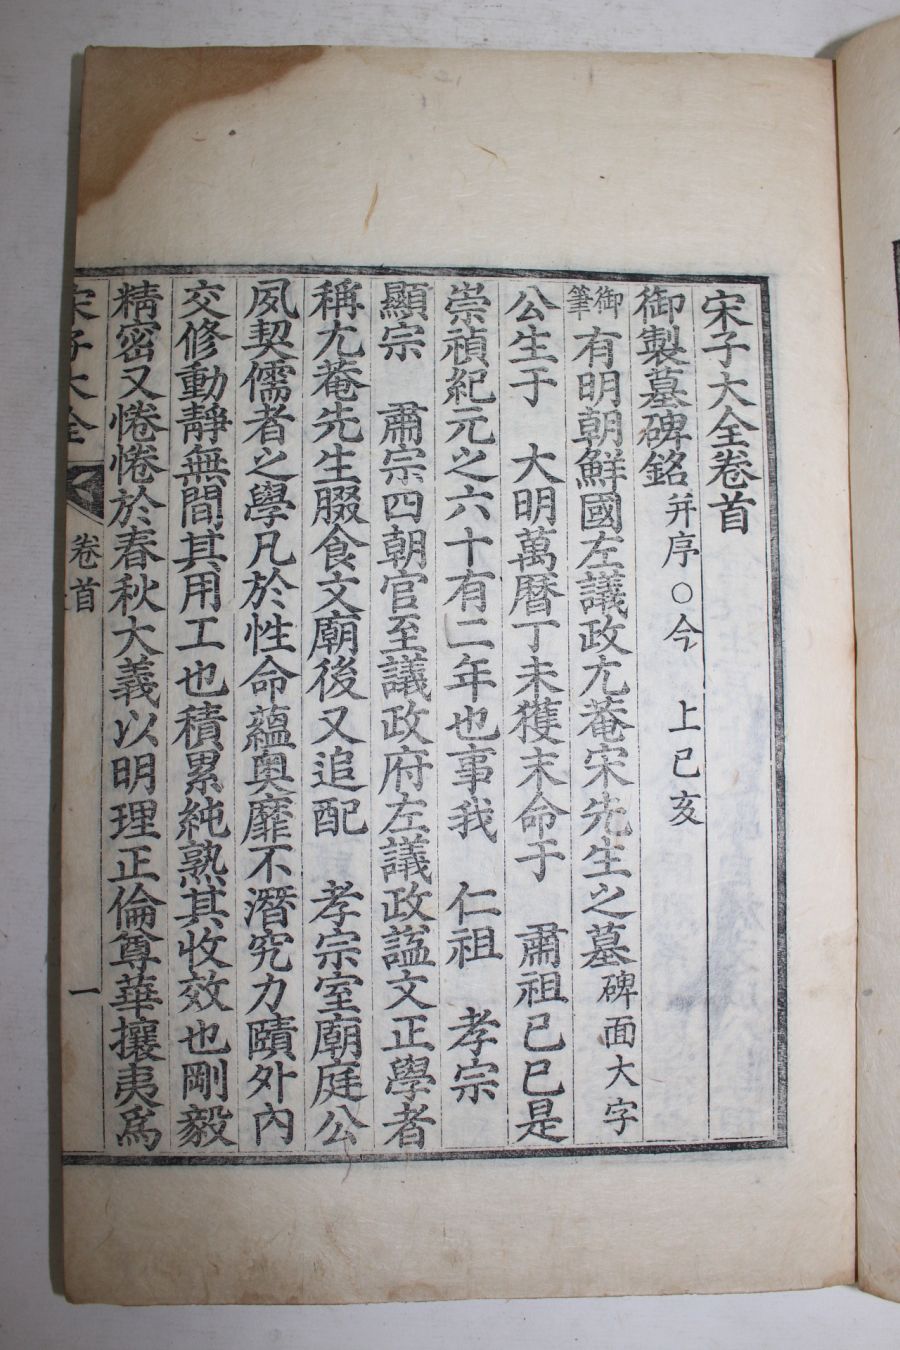 宋子大全卷首
御製墓碑銘 并序○今 上己亥
御筆 有明朝鮮國左議政尤菴宋先生之墓 碑面大字
公生于 大明萬曆丁未獲末命于 肅祖己巳是
崇禎紀元之六十有二年也事我 仁祖 孝宗
顯宗 肅宗四朝官至議政府左議政諡文正學者
稱尤菴先生腏食文廟後又追配 孝宗室廟庭公
夙契儒者之學凡於性命蘊奧靡不潛究力賾外內
交修動靜無間其用工也積累純熟其收效也剛毅
精密又惓惓於春秋大義以明理正倫尊華攘夷爲
宋子大全 卷首 一